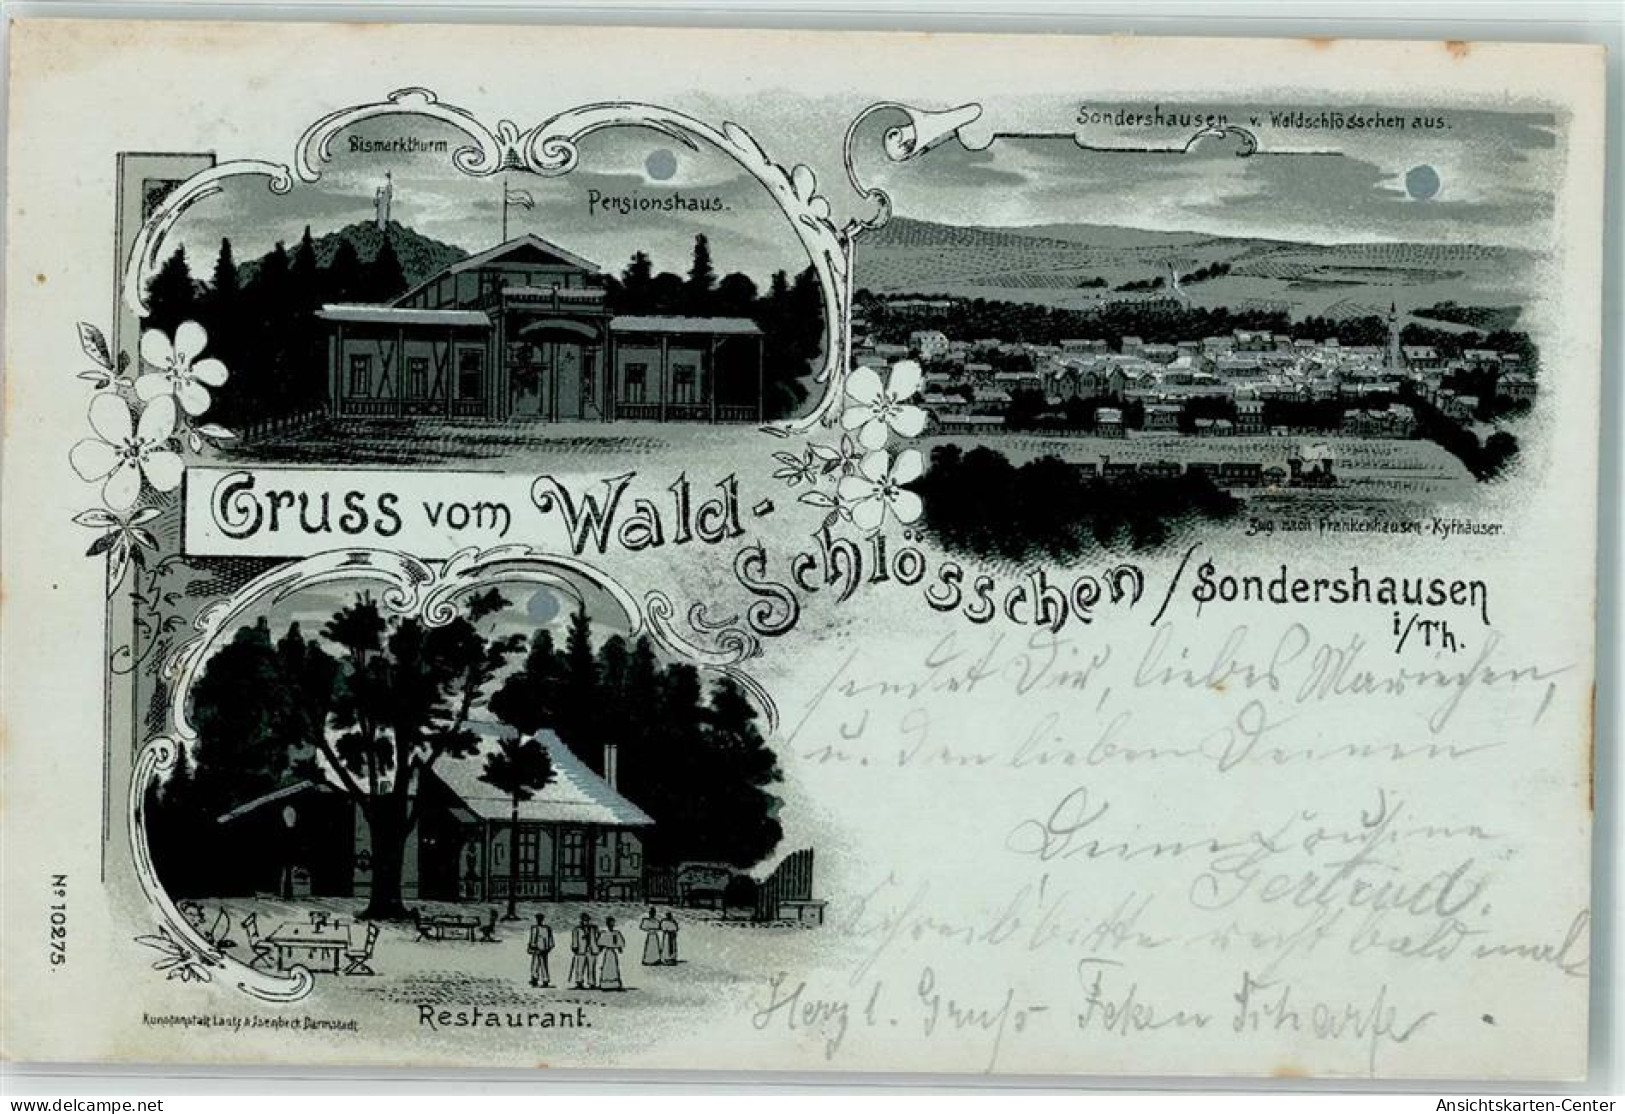 Bismarkthurm
Pensionshaus.
Sondershausen v. Waldschlösschen aus.
Zug nach Frankenhausen-Kyfhäuser.
Gruss vom Wald-
Schlösschen / Sondershausen
i/Th.
sendet Dir, liebes Mariechen,
u. den lieben Deinen
Deine Cousine
Gertrud.
Schreib bitte recht bald mal
Herzl. Gruß
Restaurant.
Kunstanstalt Lautz & Isenbeck Darmstadt
No 10275.
Ansichtskarten-Center
www.delcampe.net